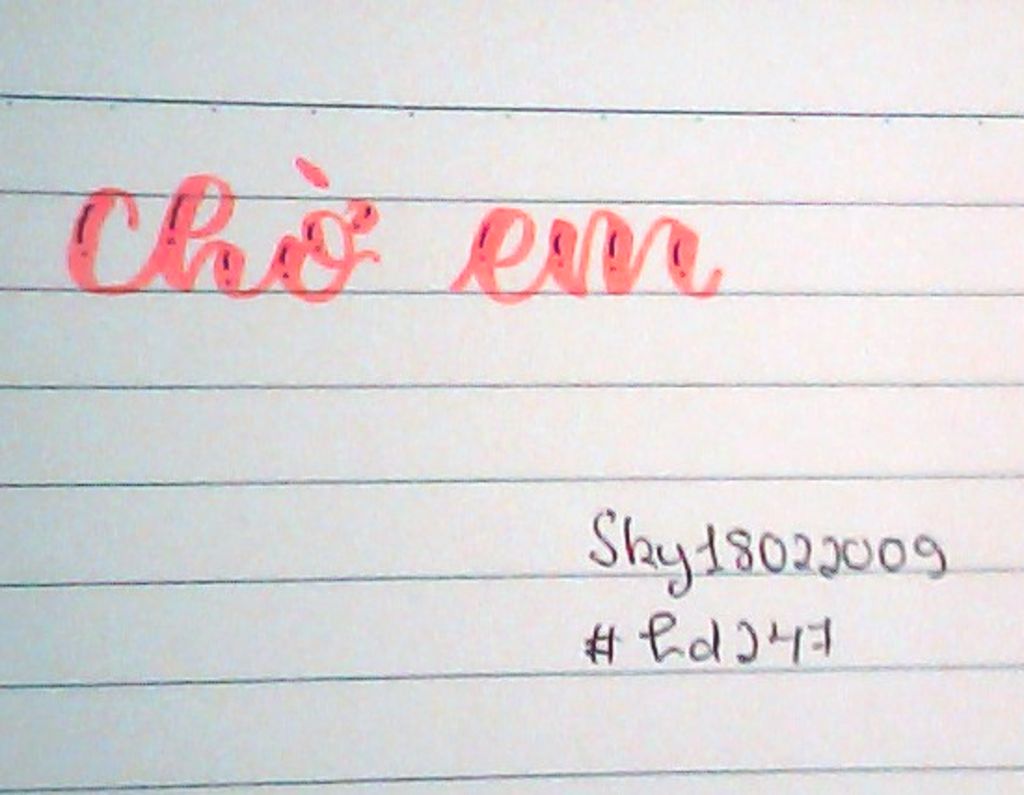 Chờ em
Sky18022009
#hd247